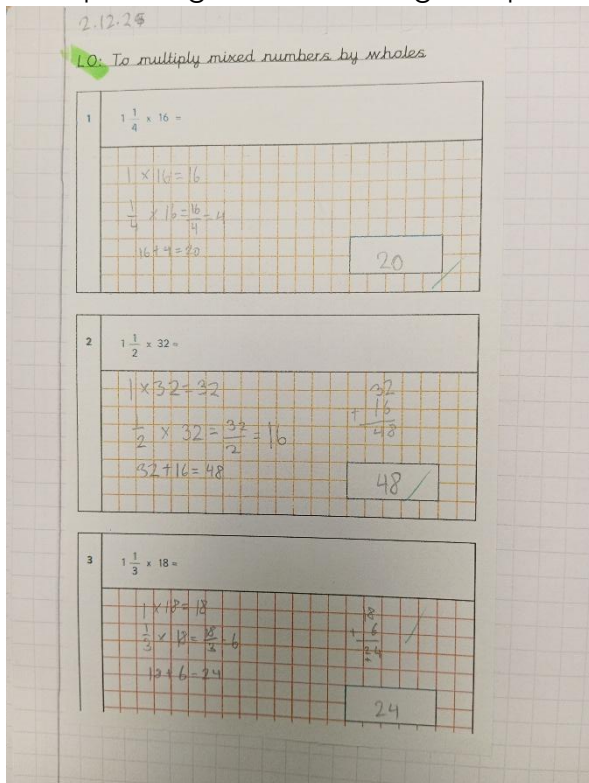 2.12.25
LO: To multiply mixed numbers by wholes
1
1 1/4 × 16 =
1 × 16 = 16
1/4 × 16 = 16/4 = 4
16 + 4 = 20
20
2
1 1/2 × 32 =
1 × 32 = 32
32
+ 16
48
1/2 × 32 = 32/2 = 16
32 + 16 = 48
48
3
1 1/3 × 18 =
1 × 18 = 18
1/3 × 18 = 18/3 = 6
18
+ 6
24
18 + 6 = 24
24